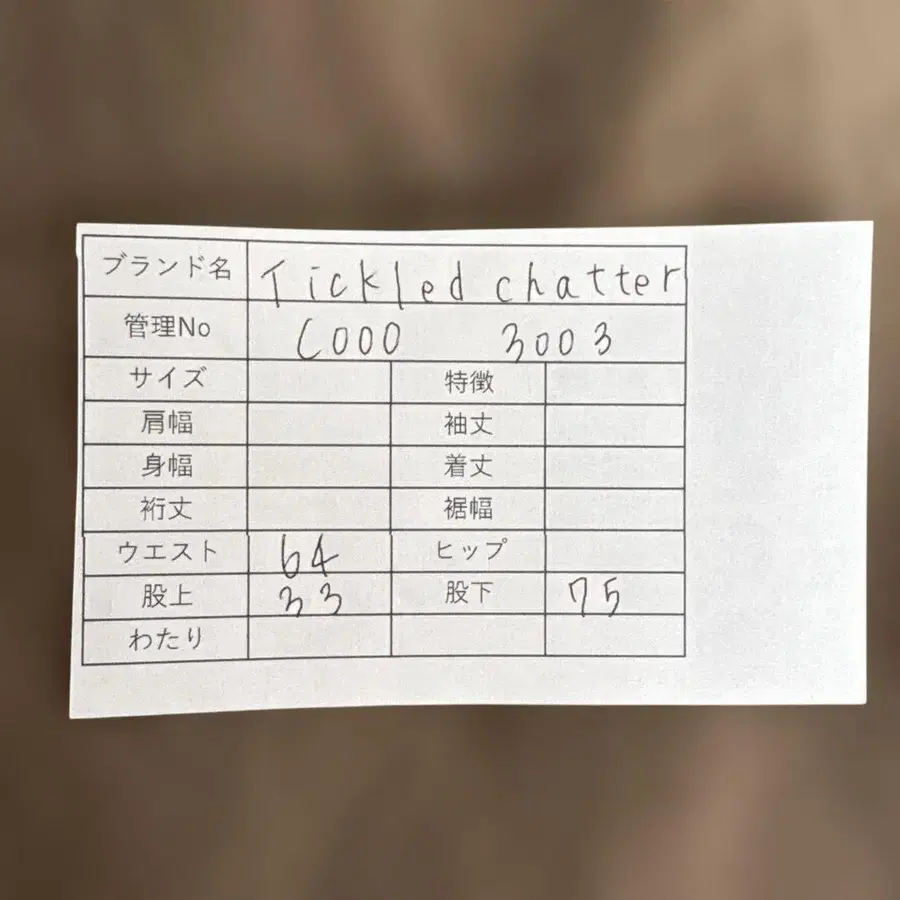 ブランド名 Tickled chatter
管理No C000 3003
サイズ 特徴
肩幅 袖丈
身幅 着丈
裄丈 裾幅
ウエスト 64 ヒップ
股上 33 股下 75
わたり